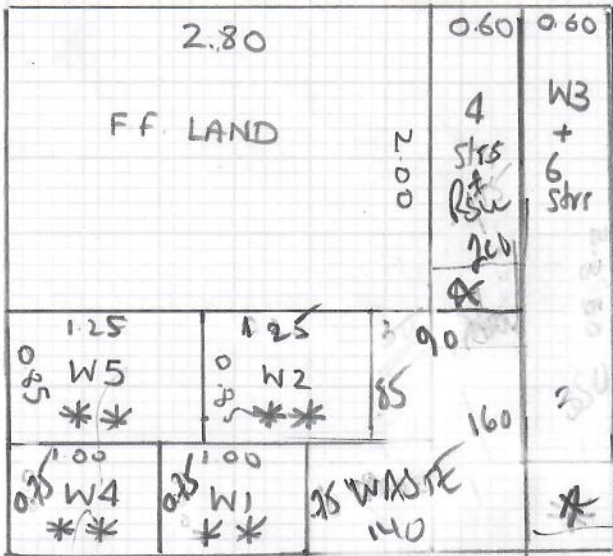 2.80
FF. LAND
2.00
0.60
4
Strs
+
BSW
0.60
W3
+
6
Strs
1.25
0.85
W5
* *
1.25
0.85
W2
* *
90
85
160
2
1.00
0.75
W4
* *
1.00
0.75
W1
* *
.75 WASTE
140
*